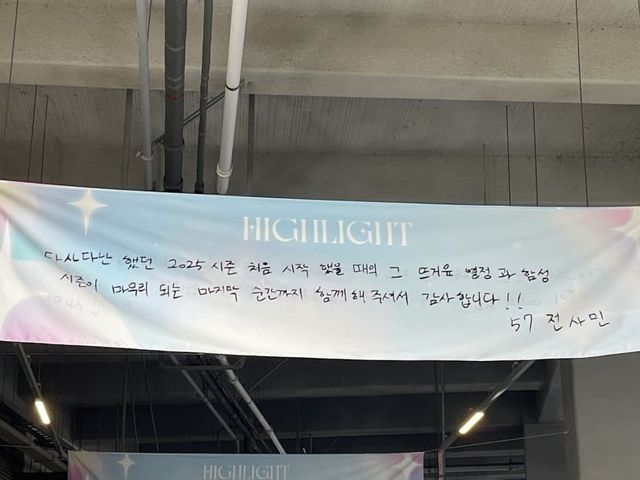 HIGHLIGHT
다사다난 했던 2025 시즌 처음 시작 했을 때의 그 뜨거운 열정과 함성
시즌이 마무리 되는 마지막 순간까지 함께 해 주셔서 감사합니다!!
57 전사민
HIGHLIGHT